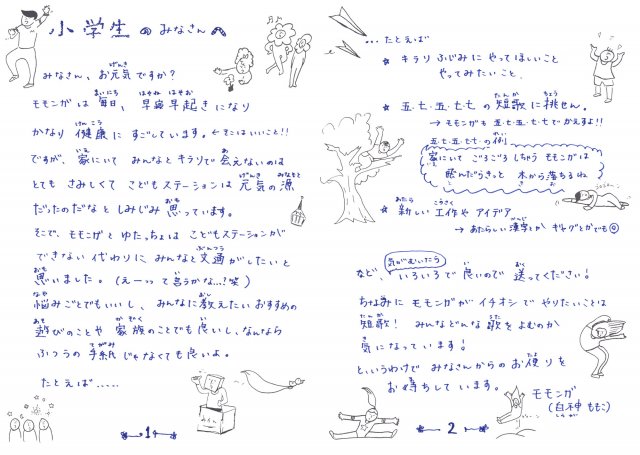 小学生のみなさんへ
みなさん、お元気ですか?
モモンガは毎日、早寝早起きになり
かなり健康にすごしています。←そこはいいこと!!
ですが、家にいてみんなとキラリで会えないのは
とてもさみしくてこどもステーションは元気の源
だったのだなとしみじみ思っています。
そこで、モモンガとゆたっちょはこどもステーションが
できない代わりにみんなと文通がしたいと
思いました。(えーって言うかな…?笑)
悩みごとでもいいし、みんなに教えたいおすすめの
遊びのことや家族のことでも良いし、なんなら
ふつうの手紙じゃなくても良いよ。
たとえば……
1
…たとえば
☆ キラリふじみにやってほしいこと
やってみたいこと。
☆ 五・七・五・七・七の短歌に挑せん。
→モモンガも五・七・五・七・七でかえすよ!!
五・七・五・七・七の例
家にいてごろごろしちゃうモモンガは
飛んだらきっと木から落ちるね
☆ 新しい工作やアイデア
→あたらしい漢字とかギャグとかでも◎
など、気がむいたらいろいろで良いので送ってください!
ちなみにモモンガがイチオシでやりたいことは
短歌! みんなどんな歌をよむのか
気になっています!
というわけでみなさんからのお便りを
お待ちしています。
モモンガ
(白神ももこ)
2